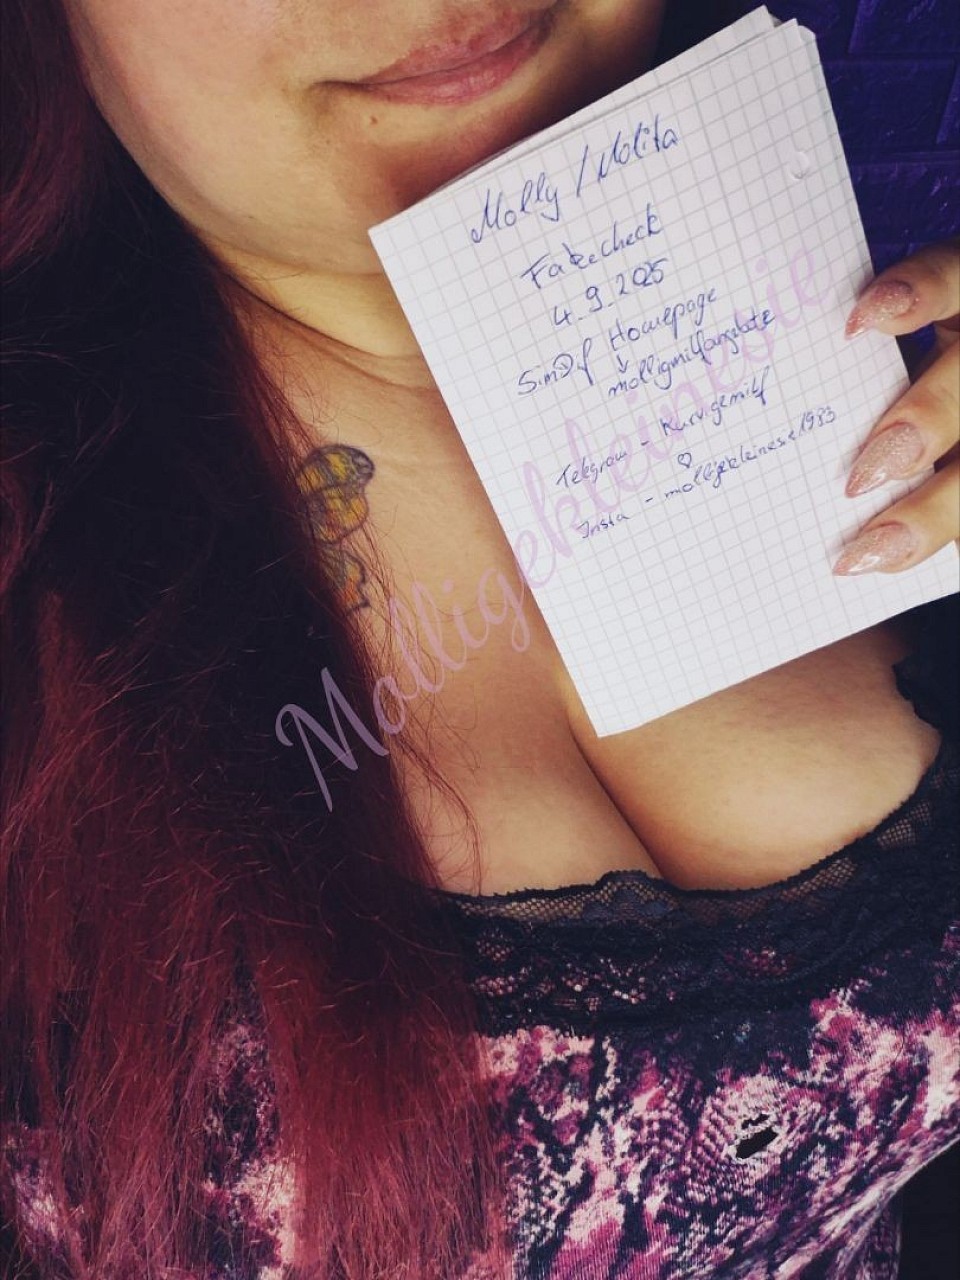 Molly / Molita
Fakecheck
4.9.2025
SimDif Homepage
molligmilfangebote
Telegram - Kurvigemilf
Insta - molligekleinesie1983
Molligekleinesie